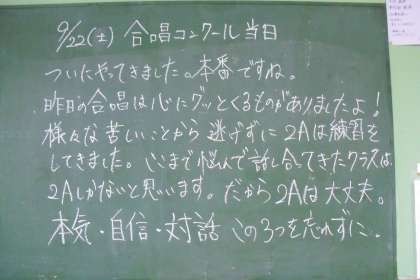 9/22(土) 合唱コンクール当日
ついにやってきました。本番ですね。
昨日の合唱は心にグッとくるものがありましたよ！
様々な苦しいことから逃げずに2Aは練習を
してきました。ここまで悩んで話し合してきたクラスは
2Aしかないと思います。だから2Aは大丈夫。
本気・自信・対話 この3つを忘れずに。